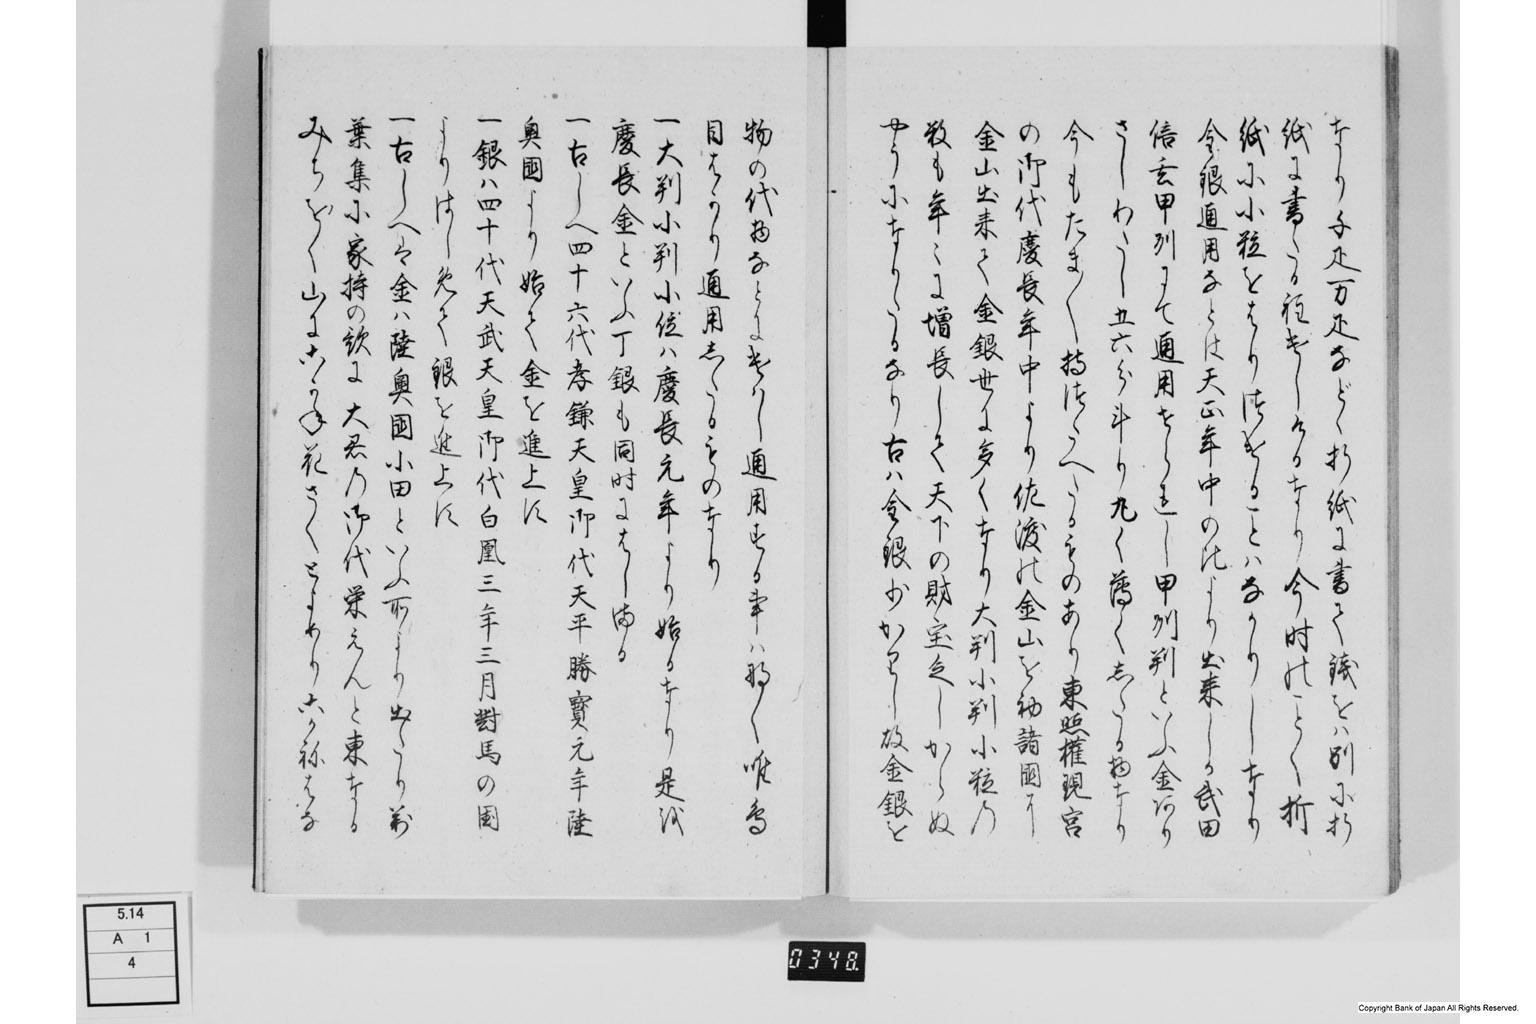 なり千疋万疋などゝ折紙に書て銭をは別に折
紙に書たる程をしるなり今時のことく折
紙に小粒をはり付ることはなかりしなり
金銀通用なとは天正年中の比より出来しか武田
信玄甲州にて通用せられし甲州判といふ金あり
さしわたし五六分斗り丸く薄くしたる物なり
今もたま〱持伝へたるものあり東照権現宮
の御代慶長年中より佐渡の金山を初諸国に
金山出来て金銀世に多くなり大判小判小粒の
数も年々に増長して天下の財宝乏しからぬ
やうになりたるなり古は金銀少かりし故金銀を
物の代物なとにつかひ通用する事は稀く唯鳥
目はかり通用したるものなり
一大判小判小粒は慶長元年より始るなり是を
慶長金といふ丁銀も同時にはしまる
一古しへ四十六代孝鎌天皇御代天平勝寶元年陸
奥國より始て金を進上す
一銀ハ四十代天武天皇御代白鳳三年三月對馬の国
よりはしめて銀を進上す
一古しへは金ハ陸奥國小田といふ所より出たり萬
葉集に家持の歌に大君の御代栄えんと東なる
みちをく山にこかね花さくとよめりこかねはな
5.14
A 1
4
0348
Copyright Bank of Japan All Rights Reserved.